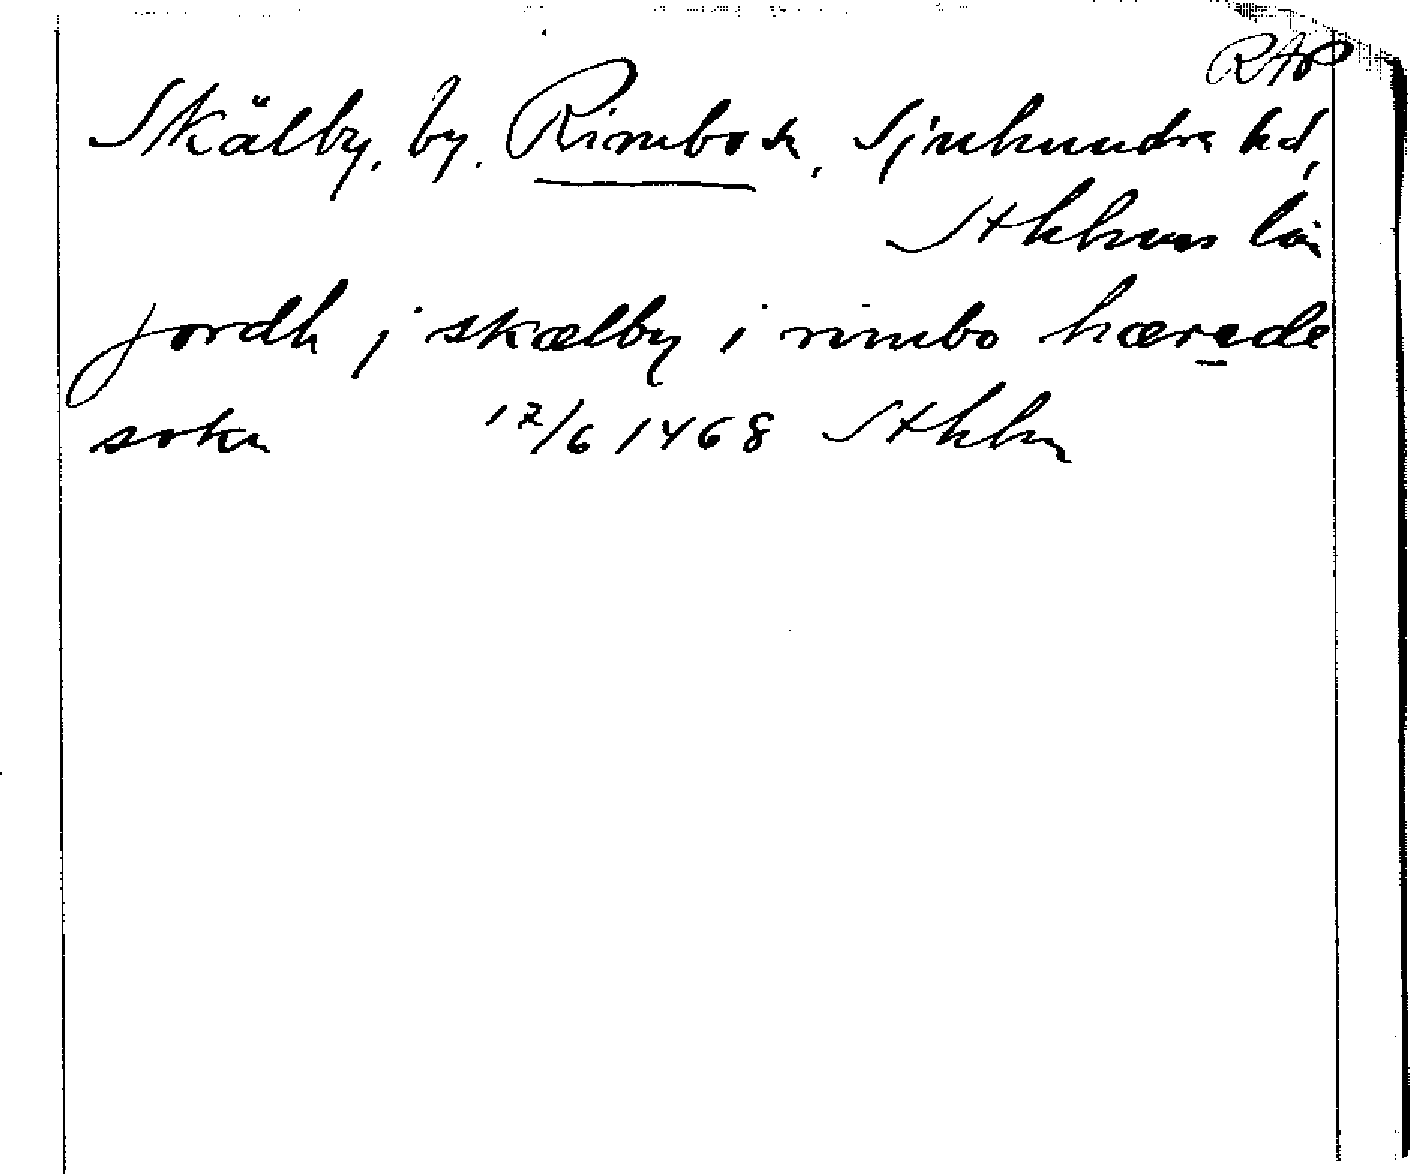 RAP
Skälby, by. Rimbo sn, Sjuhundra hd,
Sthlms län
jordh j skælby i rimbo hærede
sokn 17/6 1468 Sthlm